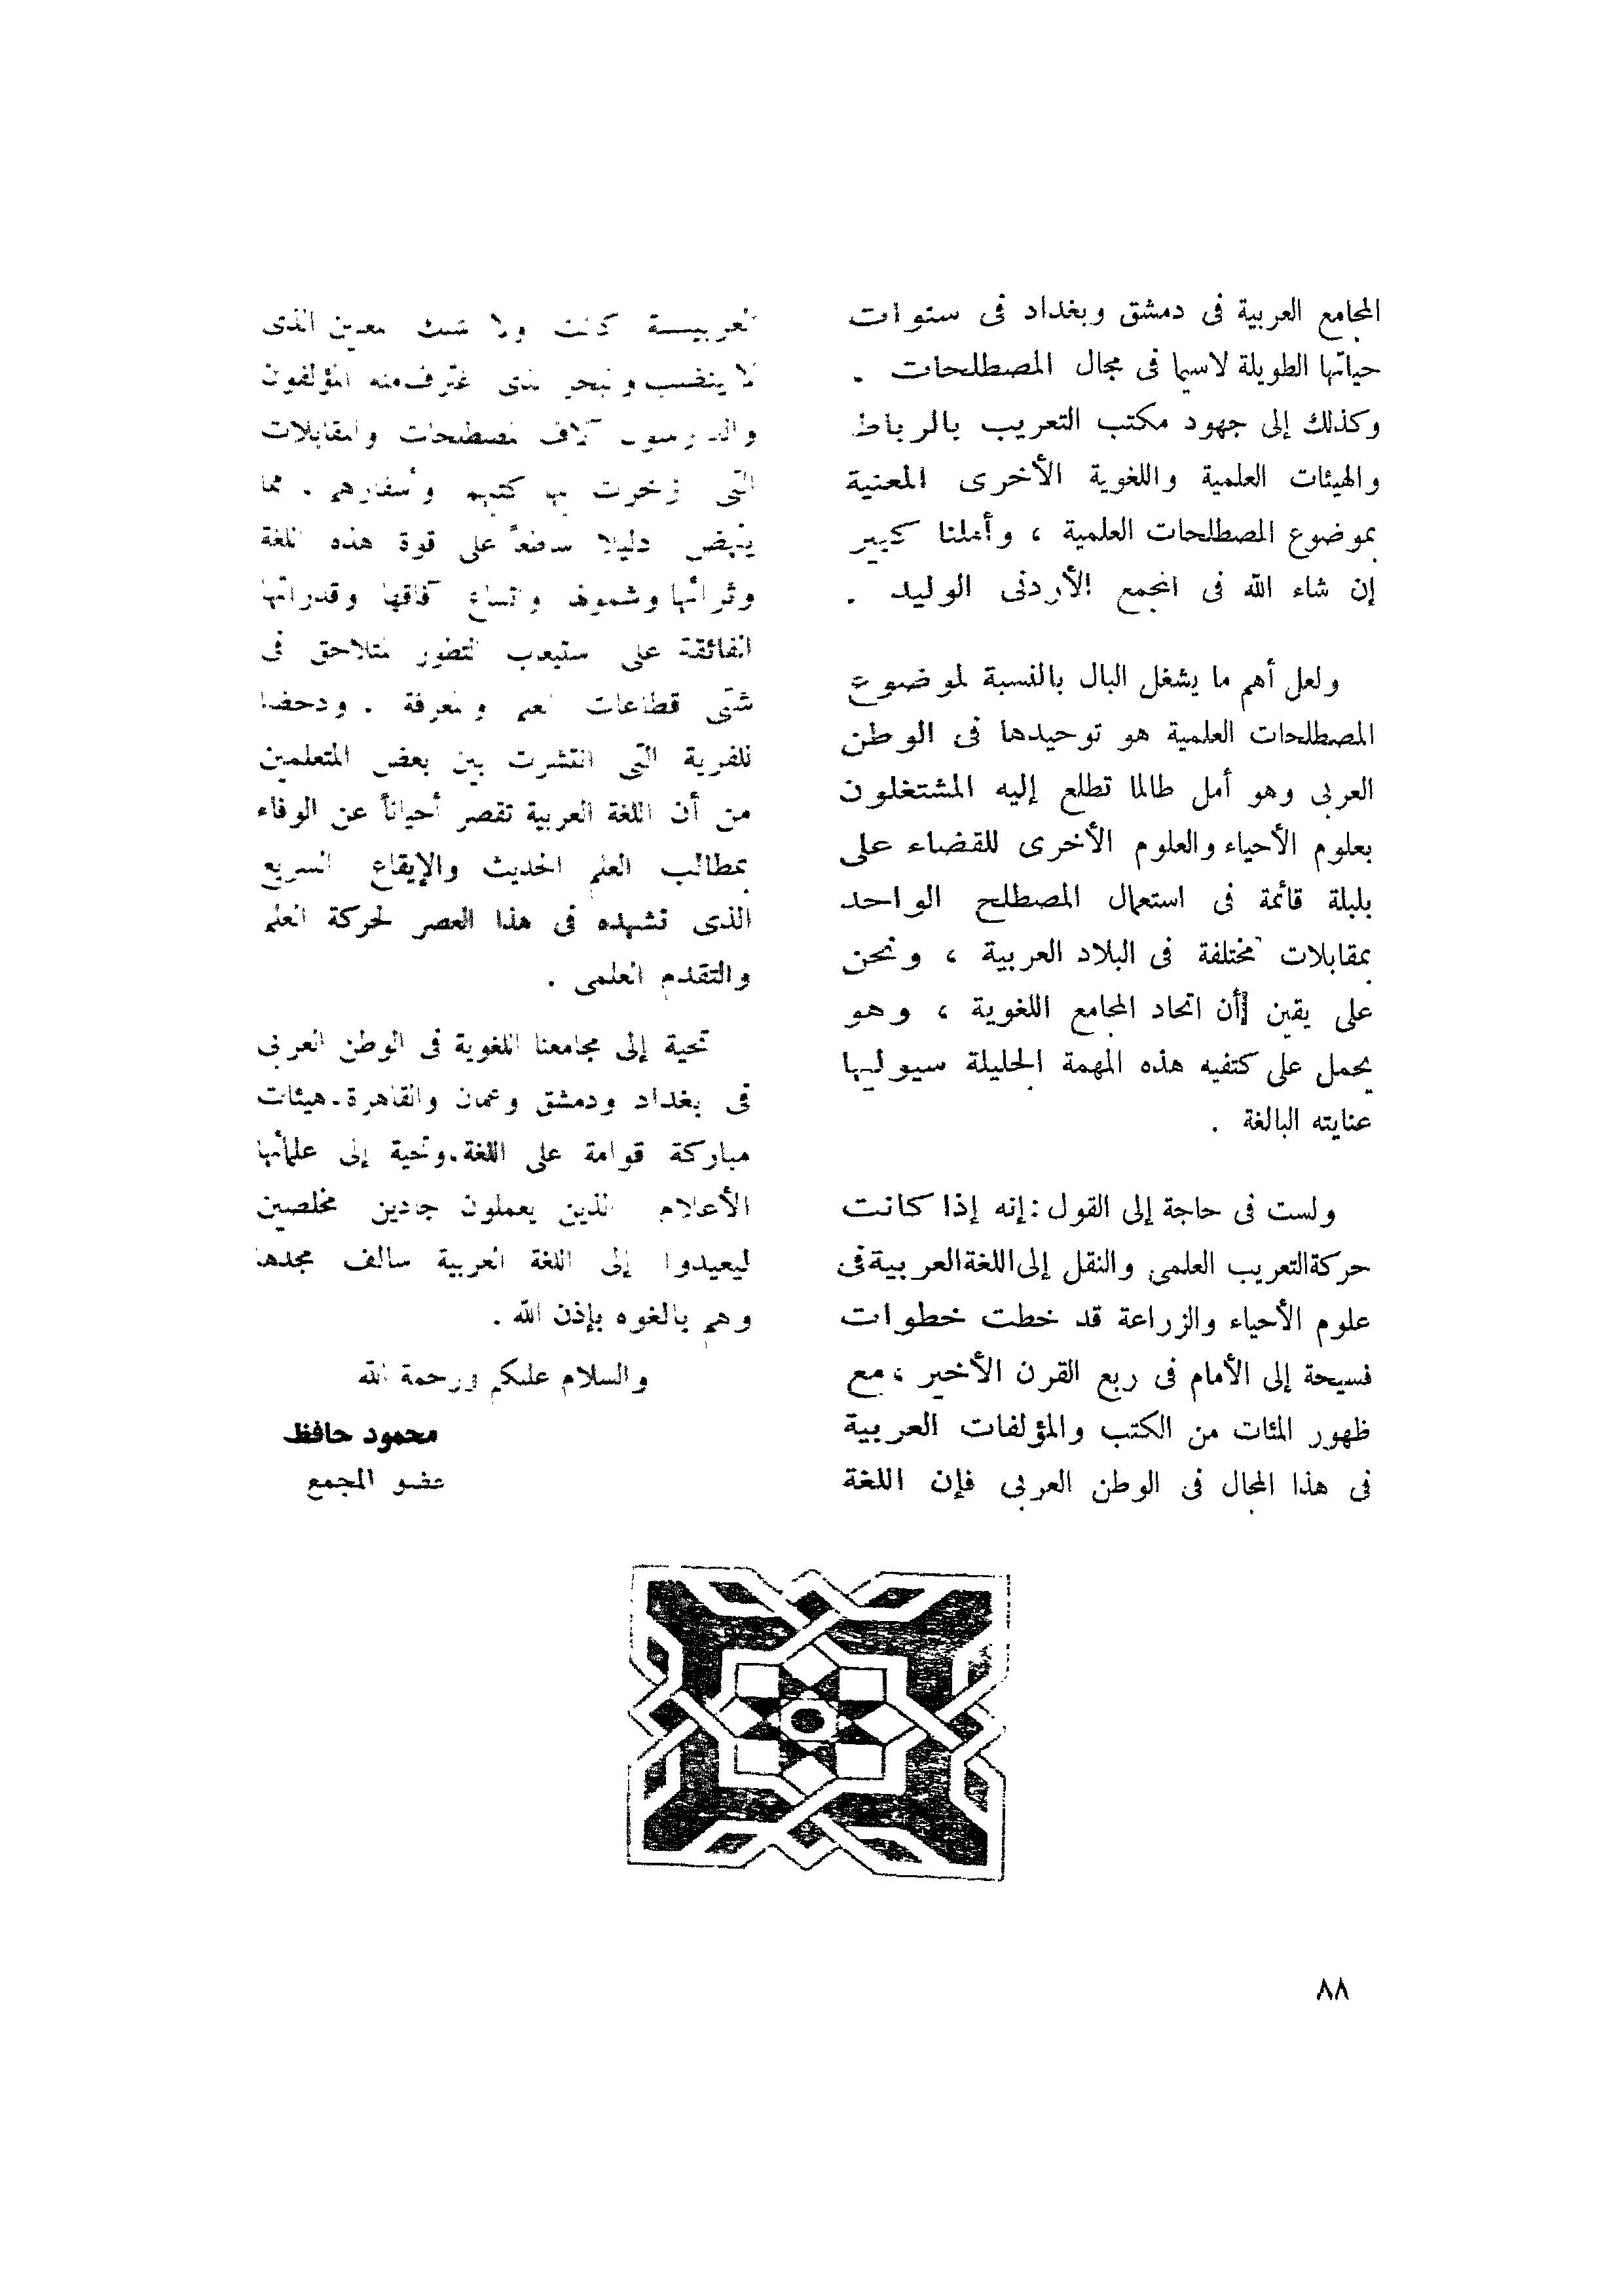 المجامع العربية فى دمشق وبغداد فى سنوات
حياتها الطويلة لاسيما فى مجال المصطلحات .
وكذلك إلى جهود مكتب التعريب بالرباط
والهيئات العلمية واللغوية الأخرى المعنية
بموضوع المصطلحات العلمية ، وأملنا كبير
إن شاء الله فى المجمع الأردنى الوليد .
ولعل أهم ما يشغل البال بالنسبة لموضوع
المصطلحات العلمية هو توحيدها فى الوطن
العربى وهو أمل طالما تطلع إليه المشتغلون
بعلوم الأحياء والعلوم الأخرى للقضاء على
بلبلة قائمة فى استعمال المصطلح الواحد
بمقابلات مختلفة فى البلاد العربية ، ونحن
على يقين أن اتحاد المجامع اللغوية ، وهو
يحمل على كتفيه هذه المهمة الجليلة سيوليها
عنايته البالغة .
ولست فى حاجة إلى القول : إنه إذا كانت
حركة التعريب العلمى والنقل إلى اللغة العربية فى
علوم الأحياء والزراعة قد خطت خطوات
فسيحة إلى الأمام فى ربع القرن الأخير ، مع
ظهور المئات من الكتب والمؤلفات العربية
فى هذا المجال فى الوطن العربى فإن اللغة
العربيـــة كانت ولا شك المعين الذى
لا ينضب والبحر الذى غترف منه المؤلفون
والدارسون آلاف المصطلحات والمقابلات
التى زخرت بها كتبهم وأسفارهم . مما
ينهض دليلا ساطعاً على قوة هذه اللغة
وثرائها وشمولها واتساع آفاقها وقدراتها
الفائقة على استيعاب التطور المتلاحق فى
شتى قطاعات العلم والمعرفة . ودحضا
للفرية التى انتشرت بين بعض المتعلمين
من أن اللغة العربية تقصر أحياناً عن الوفاء
بمطالب العلم الحديث والإيقاع السريع
الذى تشهده فى هذا العصر لحركة العلم
والتقدم العلمى .
تحية إلى مجامعنا اللغوية فى الوطن العربى
فى بغداد ودمشق وعمان والقاهرة . هيئات
مباركة قوامة على اللغة . وتحية إلى علمائها
الأعلام الذين يعملون جادين مخلصين
ليعيدوا إلى اللغة العربية سالف مجدها
وهم بالغوه بإذن الله .
والسلام عليكم ورحمة الله
محمود حافظ
عضو المجمع
٨٨